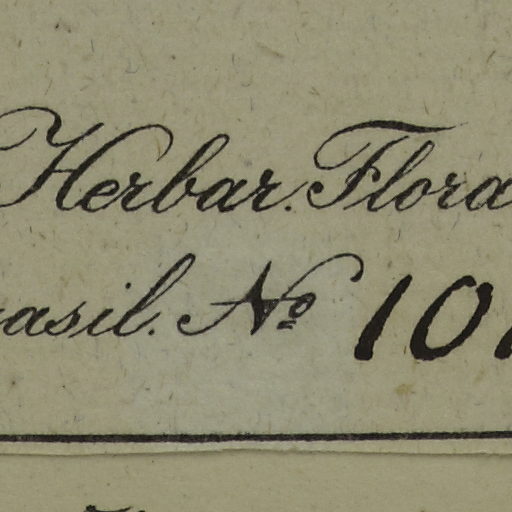 Herbar. Flora
asil. Nº 10